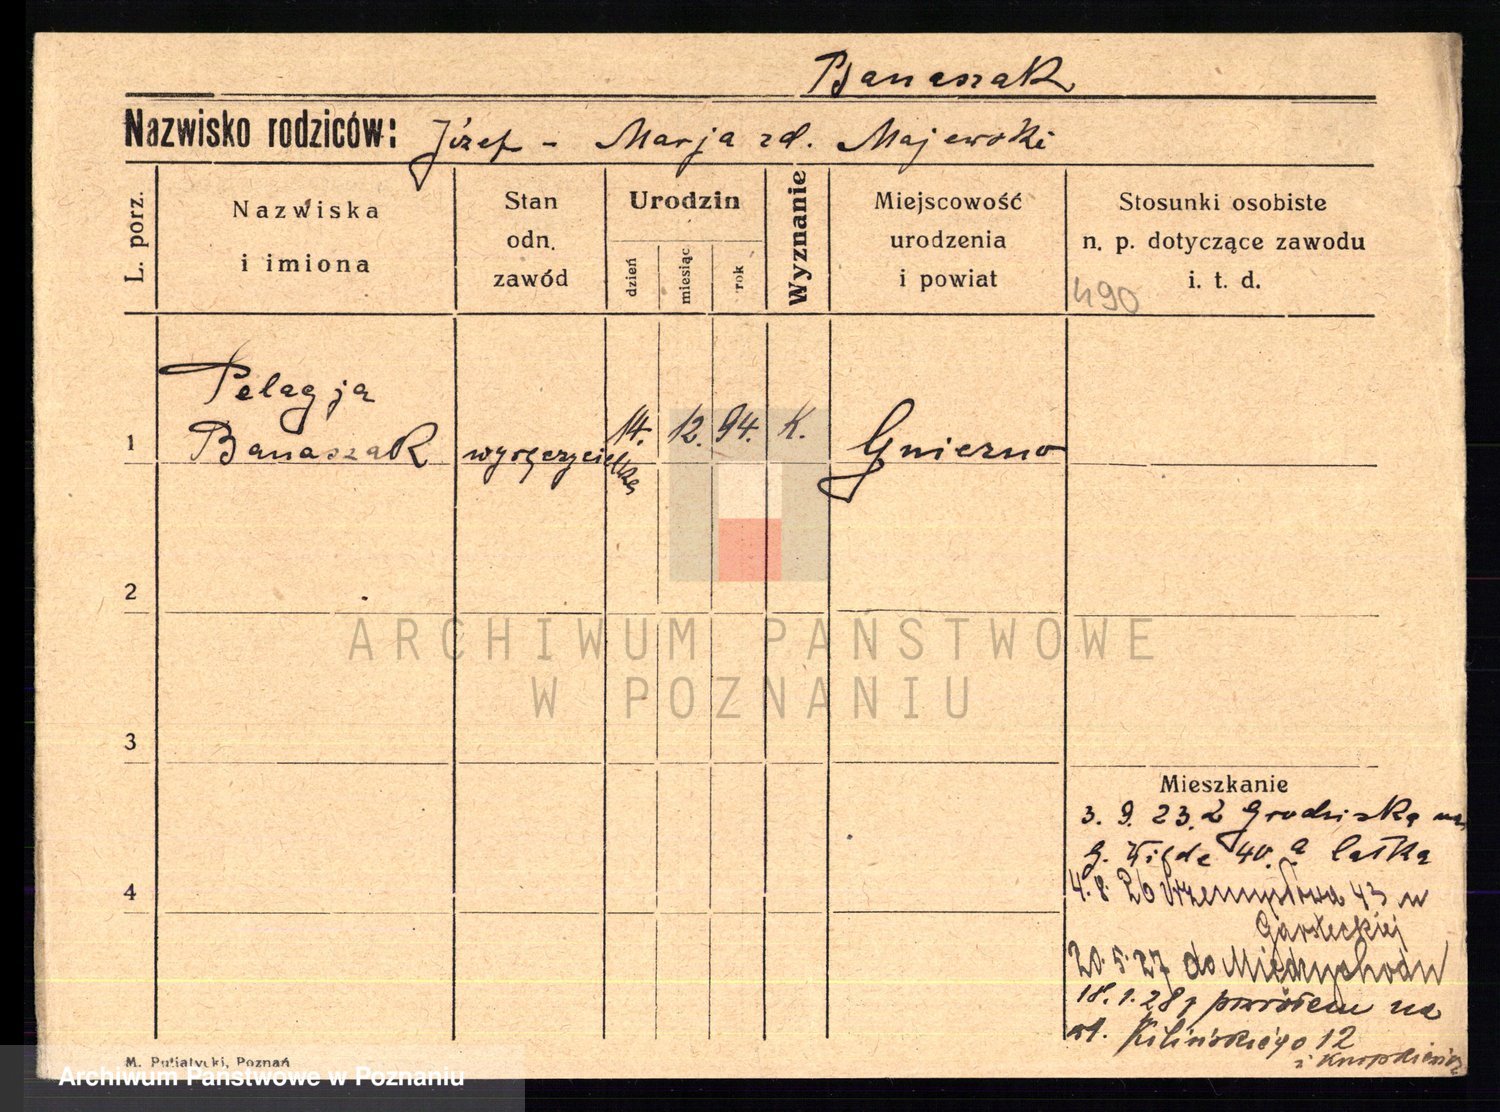 Banaszak
Nazwisko rodziców: Józef - Marja zd. Majewski
L. porz.
Nazwiska
i imiona
Stan
odn.
zawód
Urodzin
dzień
miesiąc
rok
Wyznanie
Miejscowość
urodzenia
i powiat
Stosunki osobiste
n. p. dotyczące zawodu
i. t. d.
490
Pelagja
1 Banaszak wyręczycielka 14. 12. 94. K. Gniezno
2
ARCHIWUM PAŃSTWOWE
W POZNANIU
3
Mieszkanie
3. 9. 23. z Grodziska na
G. Wildę 40.
4
4. 8. 26 Przemysłowa 43
20. 5. 27 do Międzychodu
18. 1. 28 powrótem na
Kilińskiego 12
M. Putiatycki, Poznań
Archiwum Państwowe w Poznaniu